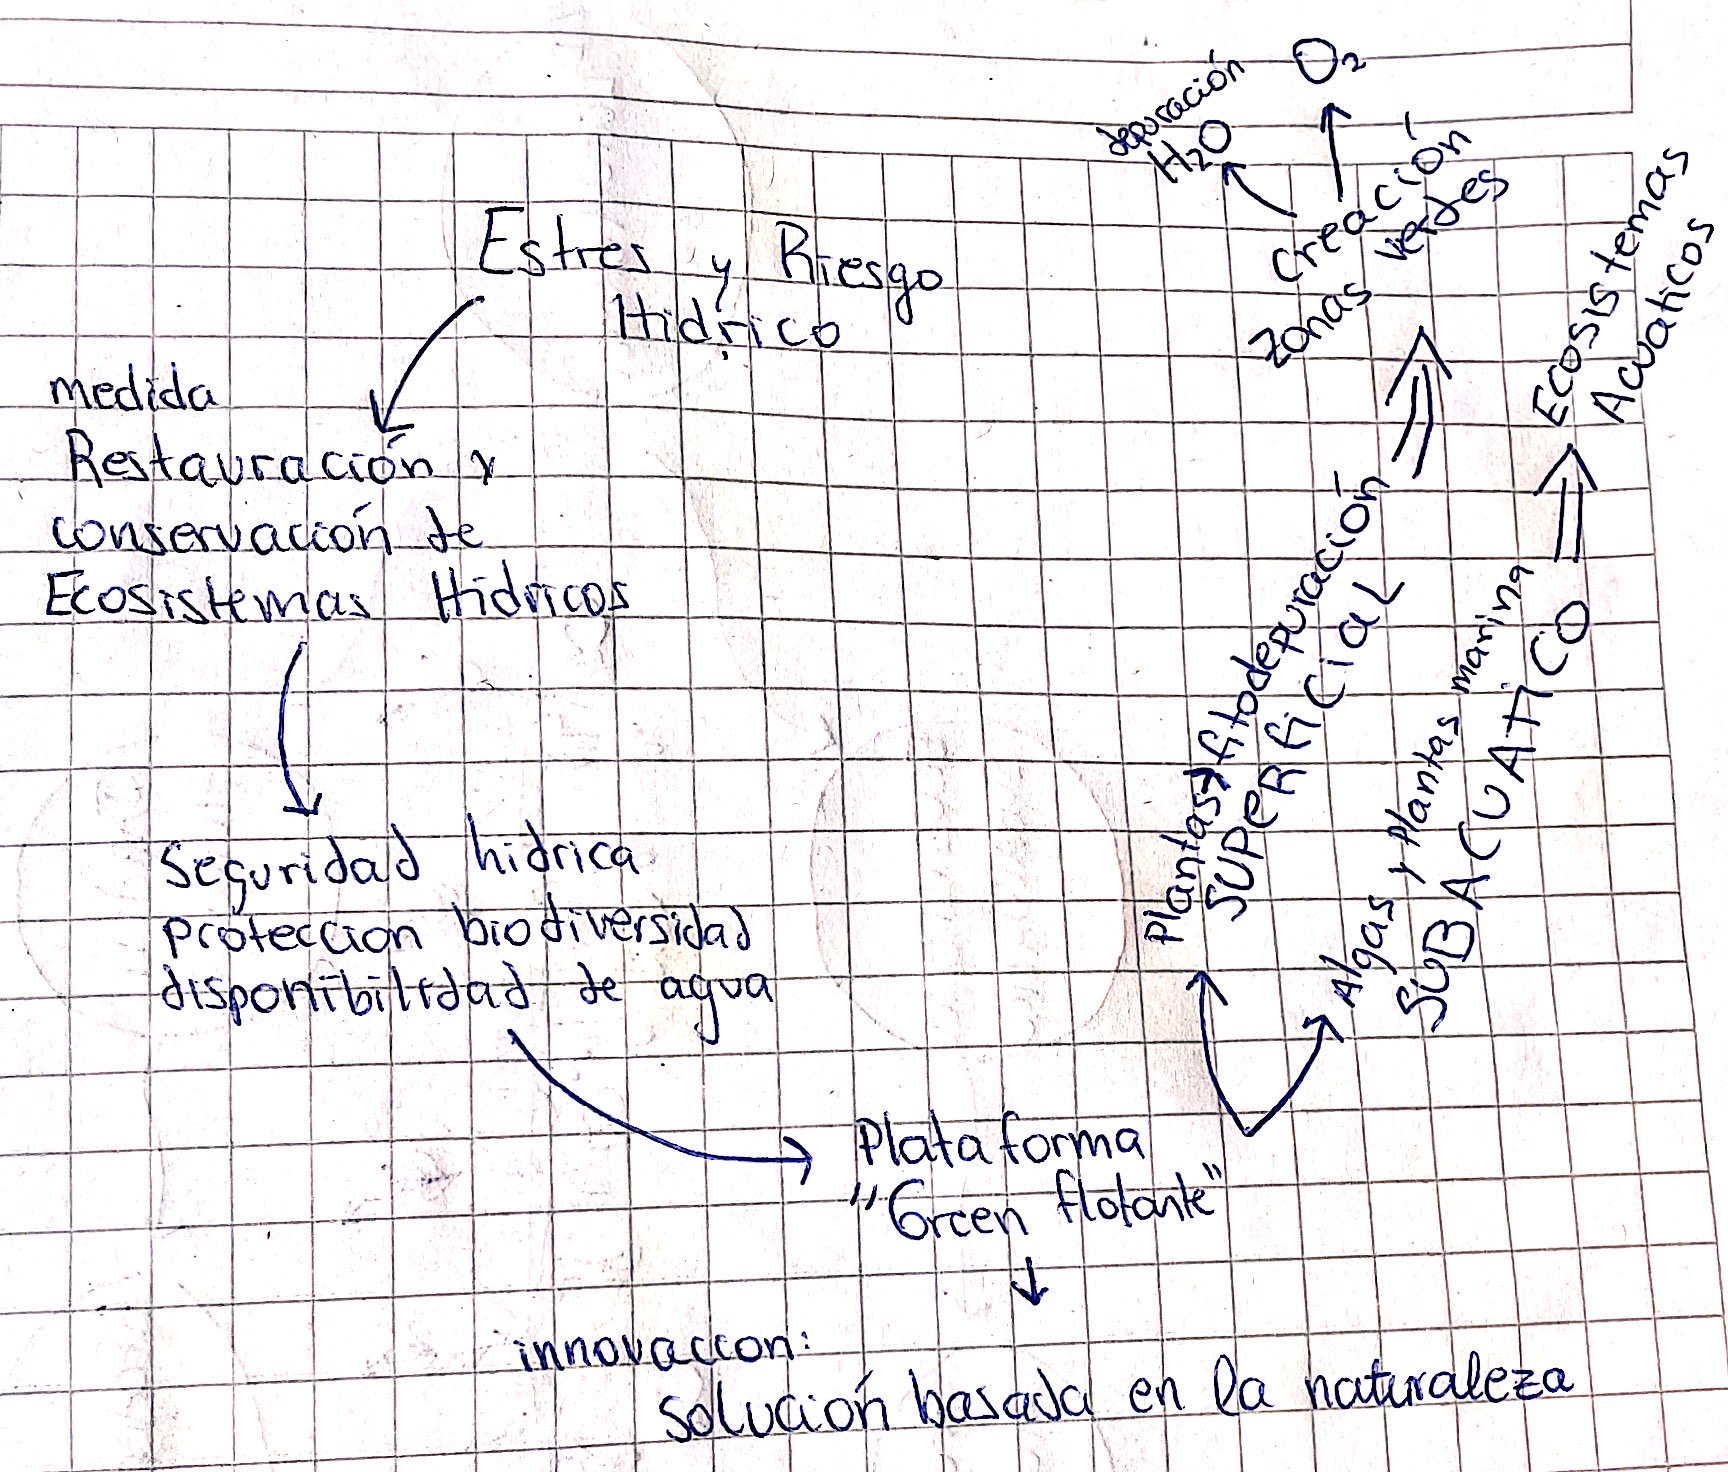 Estres y Riesgo
Hidrico
medida
Restauración y
conservación de
Ecosistemas Hídricos
Seguridad hidrica
protección biodiversidad
disponibilidad de agua
Plataforma
"Green flotante"
innovacion:
Solución basada en la naturaleza
Plantas fitodepuración
SUPERfiCiAL
creación
zonas verdes
depuración
H₂O
O₂
Algas y Plantas marina
SUBACUATiCO
Ecosistemas
Acuaticos